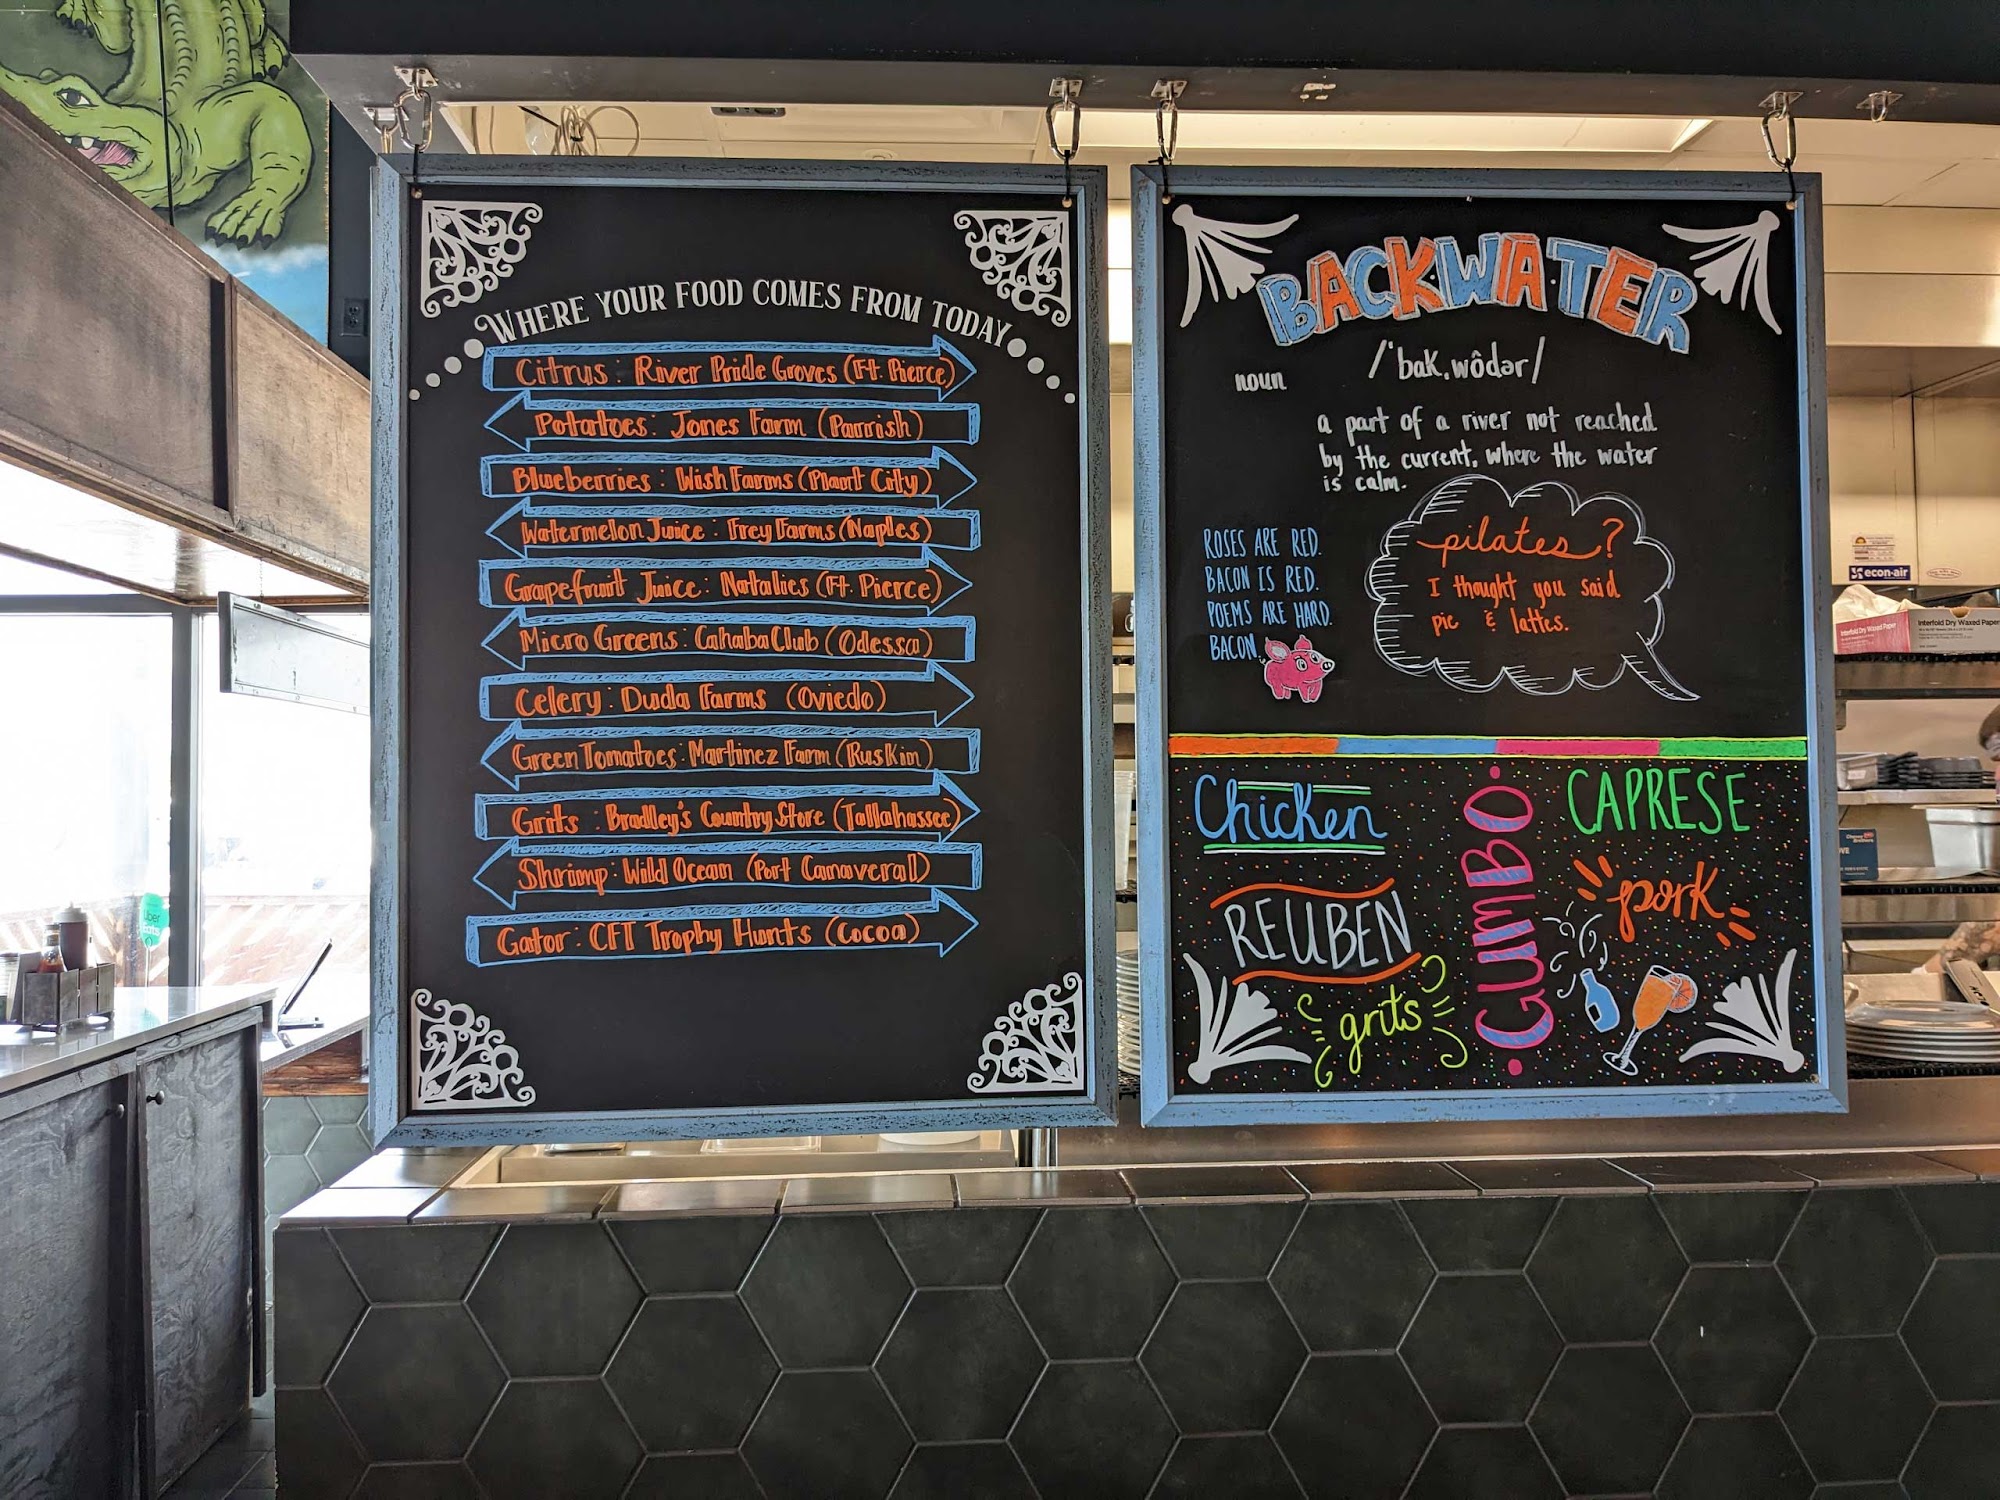 WHERE YOUR FOOD COMES FROM TODAY
Citrus: River Pride Groves (Ft. Pierce)
Potatoes: Jones Farm (Parrish)
Blueberries: Wish Farms (Plant City)
Watermelon Juice: Frey Farms (Naples)
Grapefruit Juice: Natalies (Ft. Pierce)
Micro Greens: Cahaba Club (Odessa)
Celery: Duda Farms (Oviedo)
Green Tomatoes: Martinez Farm (Ruskin)
Grits: Bradley's Country Store (Tallahassee)
Shrimp: Wild Ocean (Port Canaveral)
Gator: CFT Trophy Hunts (Cocoa)
BACKWATER
/ˈbak,wôdər/
noun
a part of a river not reached
by the current, where the water
is calm.
ROSES ARE RED.
BACON IS RED.
POEMS ARE HARD.
BACON.
pilates?
I thought you said
pie & lattes.
Chicken
REUBEN
grits
GUMBO
CAPRESE
pork
Uber
Eats
econ-air
Interfold Dry Waxed Paper
Interfold Dry Waxed Paper